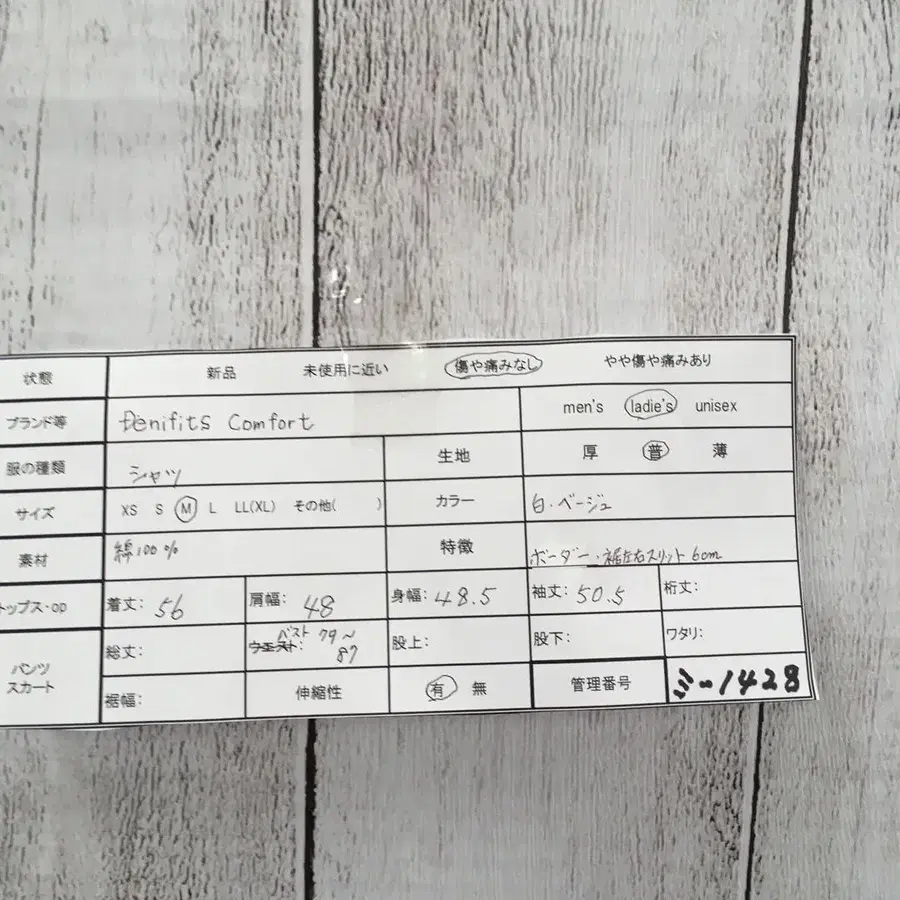 状態 新品 未使用に近い 傷や痛みなし やや傷や痛みあり
ブランド等 Denifits Comfort men's ladie's unisex
服の種類 シャツ 生地 厚 普 薄
サイズ XS S M L LL(XL) その他( ) カラー 白・ベージュ
素材 綿100% 特徴 ボーダー・裾左右スリット6cm
トップス・op 着丈: 56 肩幅: 48 身幅: 48.5 袖丈: 50.5 桁丈:
パンツ スカート 総丈: ウエスト: バスト 79~87 股上: 股下: ワタリ:
裾幅: 伸縮性 有 無 管理番号 ミー1428